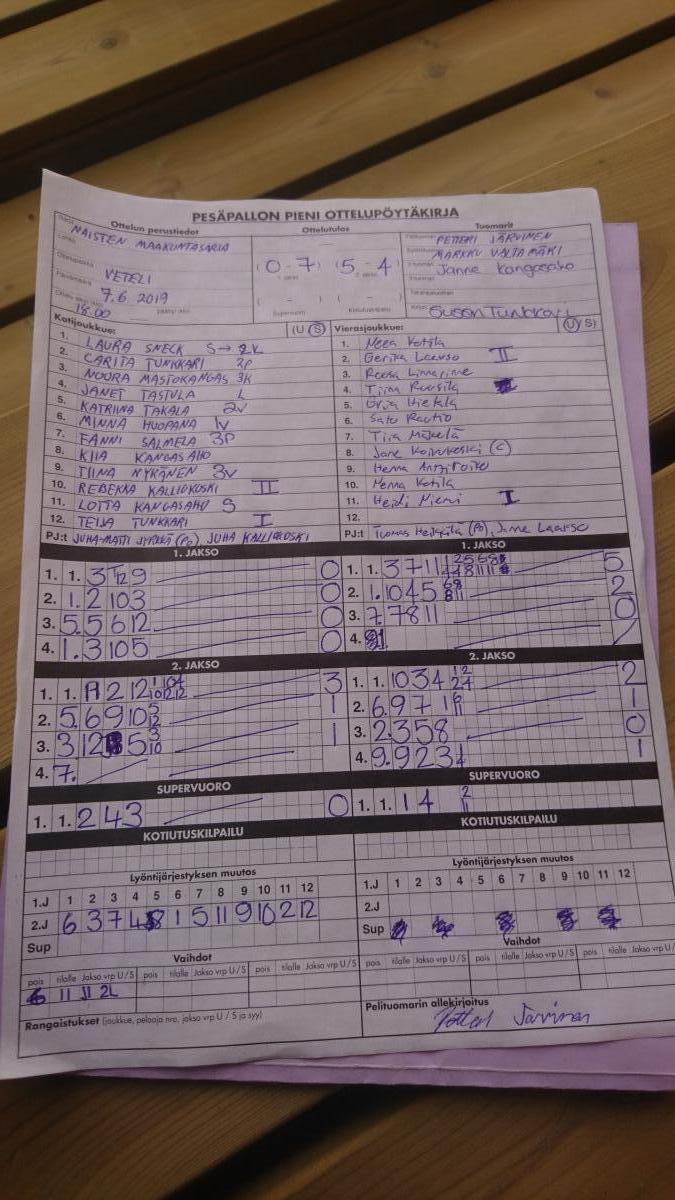 PESÄPALLON PIENI OTTELUPÖYTÄKIRJA
Ottelun perustiedot Ottelutulos Tuomarit
NAISTEN MAAKUNTASARJA
VETELI
7.6 2019
18.00
(0-7) (5-4)
( - ) ( - )
Supervuoro Kotiutuskilpailu
PETTERI JÄRVINEN
MARKKU VALTAMÄKI
Janne Kangasaho
Susan Tunkkari
Kotijoukkue: (U S)
1. LAURA SNECK S→2K
2. CARITA TUNKKARI 2P
3. NOORA MASTOKANGAS 3K
4. JANET TASTULA L
5. KATRIINA TAKALA 2V
6. MINNA HUOPANA 1V
7. FANNI SALMELA 3P
8. KIIA KANGASAHO
9. TIINA NYKÄNEN 3V
10. REBEKKA KALLIOKOSKI II
11. LOTTA KANGASAHO S
12. TEIJA TUNKKARI I
PJ:t JUHA-MATTI JYRKKÄ (PO), JUHA KALLIOKOSKI
Vierasjoukkue: (U S)
1. Neea Kotila
2. Gerika Laakso II
3. Roosa Linnarinne
4. Tiina Ruusila
5. Orja Hietala
6. Satu Rautio
7. Tiia Mäkelä
8. Jane Koivukoski (C)
9. Henna Anttiroiko
10. Henna Kotila
11. Heidi Niemi I
12.
PJ:t Tuomas Heikkilä (PO), Janne Laakso
1. JAKSO
1. 1. 3 T12 9 0
2. 1. 2 10 3 0
3. 5. 5 6 12 0
4. 1. 3 10 5 0
1. JAKSO
1. 1. 3 7 11 5
2. 1. 10 4 5 2
3. 7. 7 8 11 0
4.
2. JAKSO
1. 1. 2 12 3
2. 5. 6 9 10 1
3. 3 12 5 1
4. 7.
2. JAKSO
1. 1. 10 3 4 2
2. 6. 9 7 1 1
3. 2. 3 5 8 0
4. 9. 9 2 3 1
SUPERVUORO
1. 1. 2 4 3 0
SUPERVUORO
1. 1. 1 4
KOTIUTUSKILPAILU
KOTIUTUSKILPAILU
Lyöntijärjestyksen muutos
1.J 1 2 3 4 5 6 7 8 9 10 11 12
2.J 6 3 7 4 8 1 5 11 9 10 2 12
Sup
Lyöntijärjestyksen muutos
1.J 1 2 3 4 5 6 7 8 9 10 11 12
2.J
Sup
Vaihdot
pois tilalle Jakso vrp U/S pois tilalle Jakso vrp U/S pois tilalle Jakso vrp U/S
6 11 JI 2L
Vaihdot
pois tilalle Jakso vrp U/S pois tilalle Jakso vrp U/S pois tilalle Jakso vrp U/S
Rangaistukset (joukkue, pelaaja nro, jakso vrp U / S ja syy)
Pelituomarin allekirjoitus
Petteri Järvinen